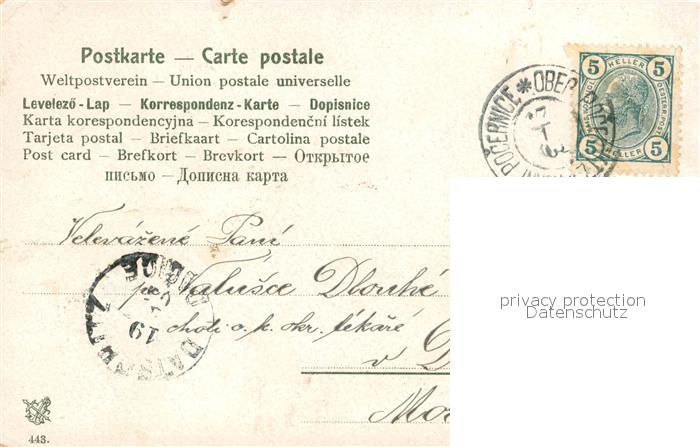 Postkarte — Carte postale
Weltpostverein — Union postale universelle
Levelező-Lap — Korrespondenz-Karte — Dopisnice
Karta korespondencyjna — Korespondenční lístek
Tarjeta postal — Briefkaart — Cartolina postale
Post card — Brefkort — Brevkort — Открытое
письмо — Дописна карта
5 HELLER 5
5 HELLER 5
POČERNICE * OBER
Velevážené Paní
Valušce Dlouhé
choti c. k. okr. lékaře
v D
Mo
19
443.
privacy protection
Datenschutz